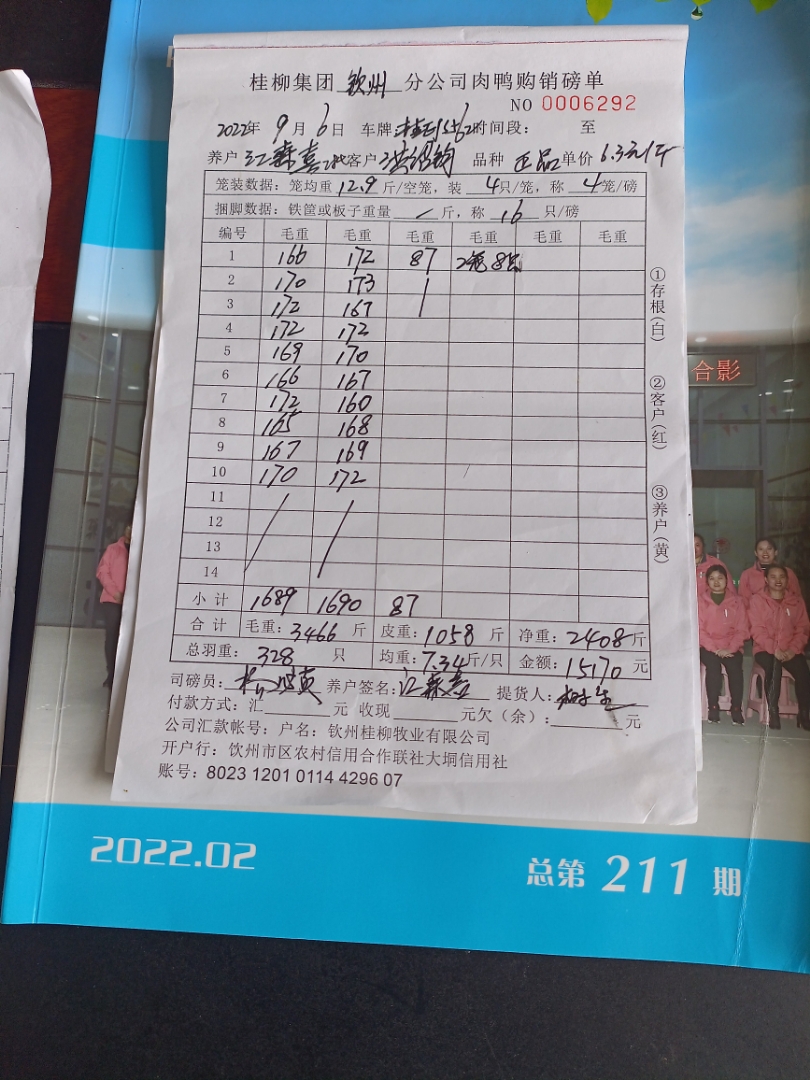 桂柳集团 钦州 分公司肉鸭购销磅单
NO 0006292
2022年 9月 6日 车牌: 时间段: 至
养户 江森喜 客户 品种 正品 单价 6.3元/斤
笼装数据: 笼均重 12.9 斤/空笼, 装 4 只/笼, 称 4 笼/磅
捆脚数据: 铁筐或板子重量 / 斤, 称 16 只/磅
编号 毛重 毛重 毛重 毛重 毛重 毛重
1 166 172 87 2笼8只
2 170 173
3 172 167
4 172 172
5 169 170
6 166 167
7 172 160
8 165 168
9 167 169
10 170 172
11
12
13
14
小计 1689 1690 87
合计 毛重: 3466 斤 皮重: 1058 斤 净重: 2408 斤
总羽重: 328 只 均重: 7.34 斤/只 金额: 15170 元
司磅员: 养户签名: 江森喜 提货人:
付款方式: 汇 元 收现 元欠(余): 元
公司汇款帐号: 户名: 钦州桂柳牧业有限公司
开户行: 钦州市区农村信用合作联社大垌信用社
账号: 8023 1201 0114 4296 07
①存根(白)
②客户(红)
③养户(黄)
合影
2022.02
总第 211 期